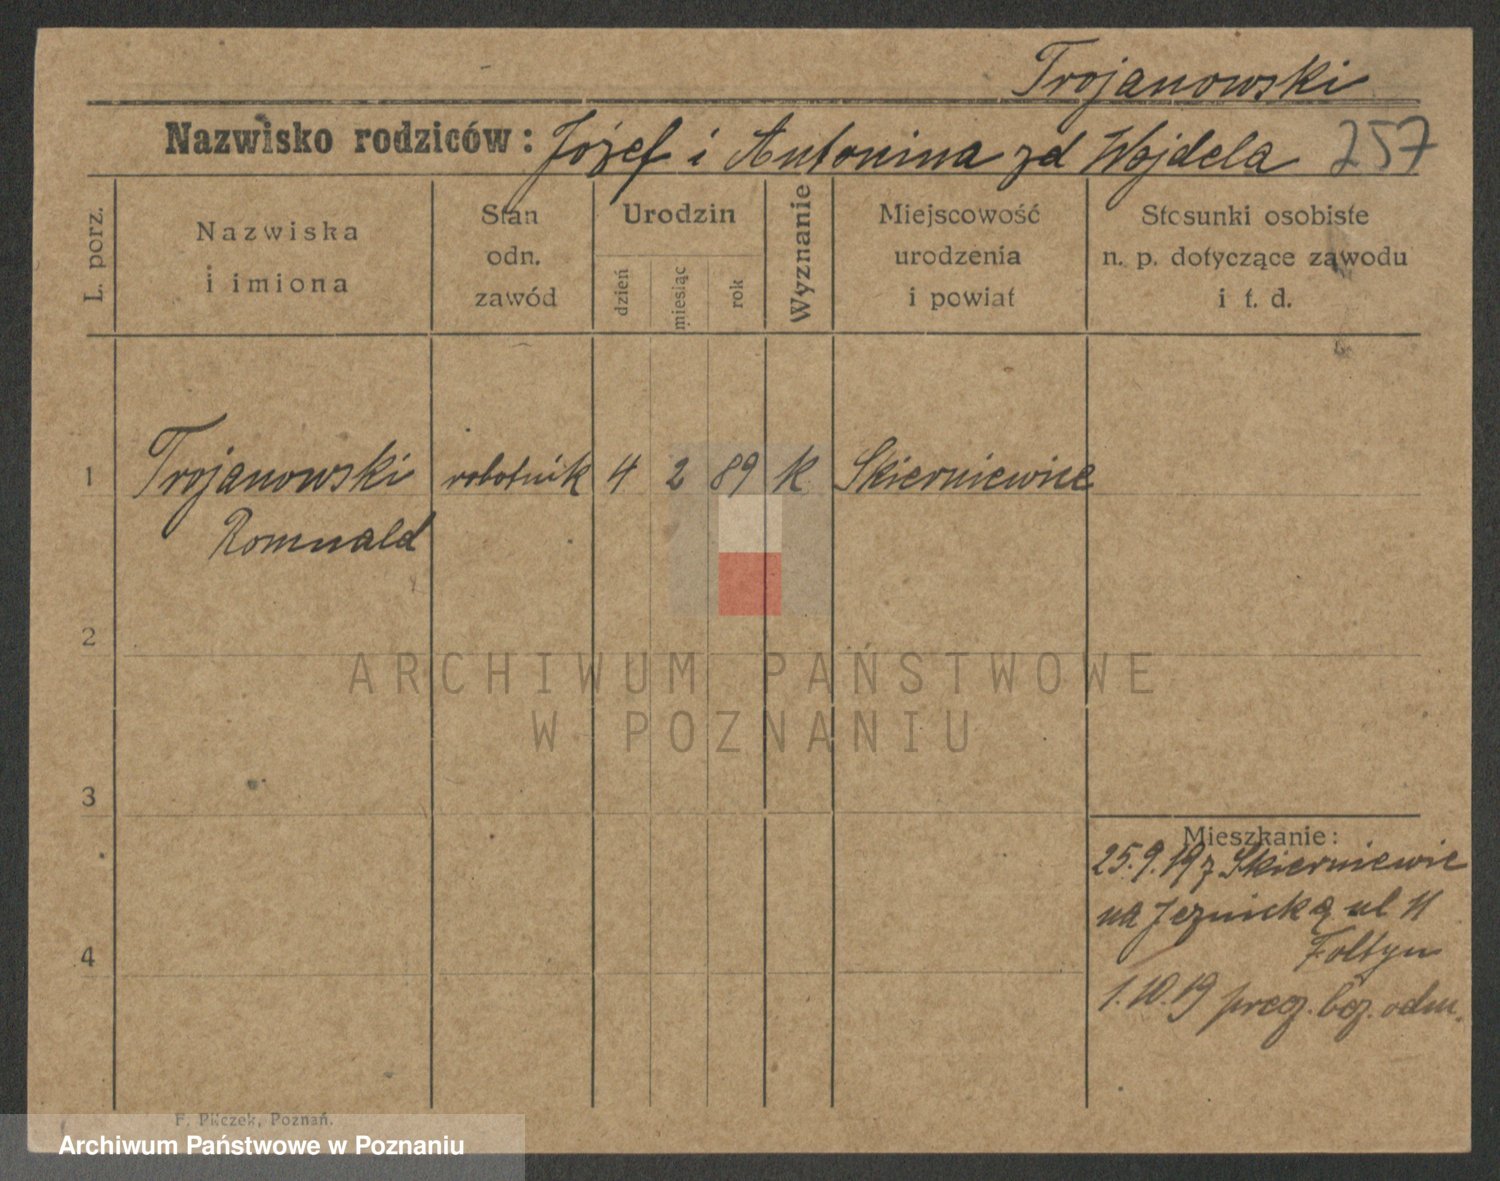 Trojanowski
Nazwisko rodziców: Józef i Antonina zd Wojdela 257
L. porz.
Nazwiska
i imiona
Stan
odn.
zawód
Urodzin
dzień
miesiąc
rok
Wyznanie
Miejscowość
urodzenia
i powiat
Stosunki osobiste
n. p. dotyczące zawodu
i t. d.
1 Trojanowski robotnik 4 2 89 k Skierniewice
Romuald
2
3
4
Mieszkanie:
25.9.19 z Skierniewic
na Jeznicką ul 11
Foltyn
1.10.19 bez. odm.
ARCHIWUM PAŃSTWOWE
W POZNANIU
F. Pilczek, Poznań.
Archiwum Państwowe w Poznaniu